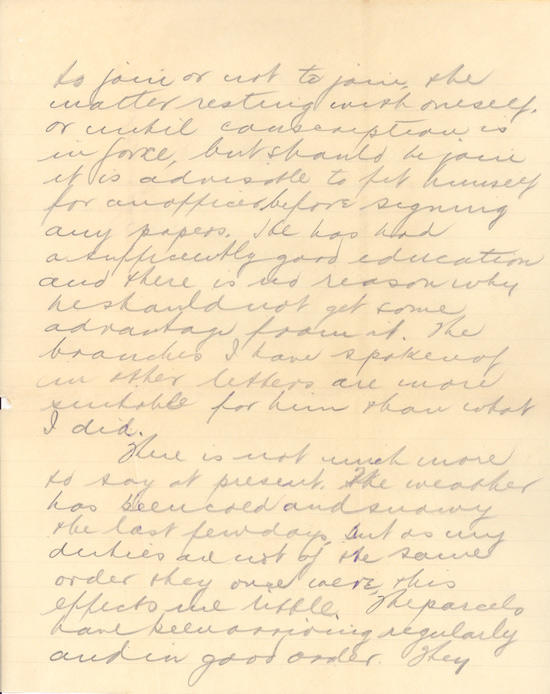 to join or not to join, the
matter resting with oneself,
or until conscription is
in force, but should he join
it is advisable to fit himself
for an officer before signing
any papers. He has had
a sufficiently good education
and there is no reason why
he should not get some
advantage from it. The
branches I have spoken of
in other letters are more
suitable for him than what
I did.
There is not much more
to say at present. The weather
has been cold and snowy
the last few days, but as my
duties are not of the same
order they once were, this
effects me little. The parcels
have been arriving regularly
and in good order. They